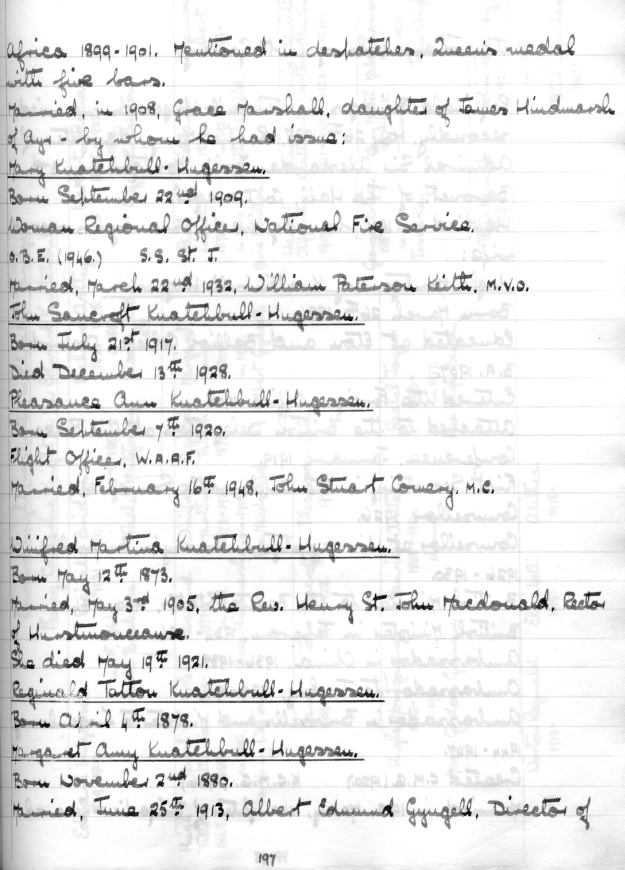 Africa 1899-1901. Mentioned in despatches, Queen's medal
with five bars.
Married, in 1908, Grace Marshall, daughter of James Hindmarsh
of Ayr - by whom he had issue:
Mary Knatchbull-Hugessen.
Born September 22nd 1909.
Woman Regional Officer, National Fire Service.
O.B.E. (1946.) S.S. St. J.
Married, March 22nd 1932, William Paterson Keith, M.V.O.
John Sancroft Knatchbull-Hugessen.
Born July 21st 1917.
Died December 13th 1928.
Pleasance Ann Knatchbull-Hugessen.
Born September 7th 1920.
Flight Officer, W.A.A.F.
Married, February 16th 1948, John Stuart Cowery, M.C.
Winifred Martina Knatchbull-Hugessen.
Born May 12th 1873.
Married, May 3rd 1905, the Rev. Henry St. John Macdonald, Rector
of Hurstmonceaux.
She died May 19th 1921.
Reginald Tatton Knatchbull-Hugessen.
Born April 4th 1878.
Margaret Amy Knatchbull-Hugessen.
Born November 2nd 1880.
Married, June 25th 1913, Albert Edmund Gyngell, Director of
197